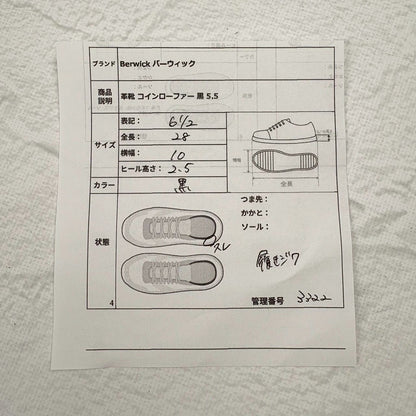 ブランド Berwick バーウィック
商品説明 革靴 コインローファー 黒 5.5
サイズ
表記： 6 1/2
全長： 28
横幅： 10
ヒール高さ： 2.5
横幅
全長
カラー 黒
状態
つま先：
かかと：
ソール：
スレ
履きジワ
4
管理番号 3322